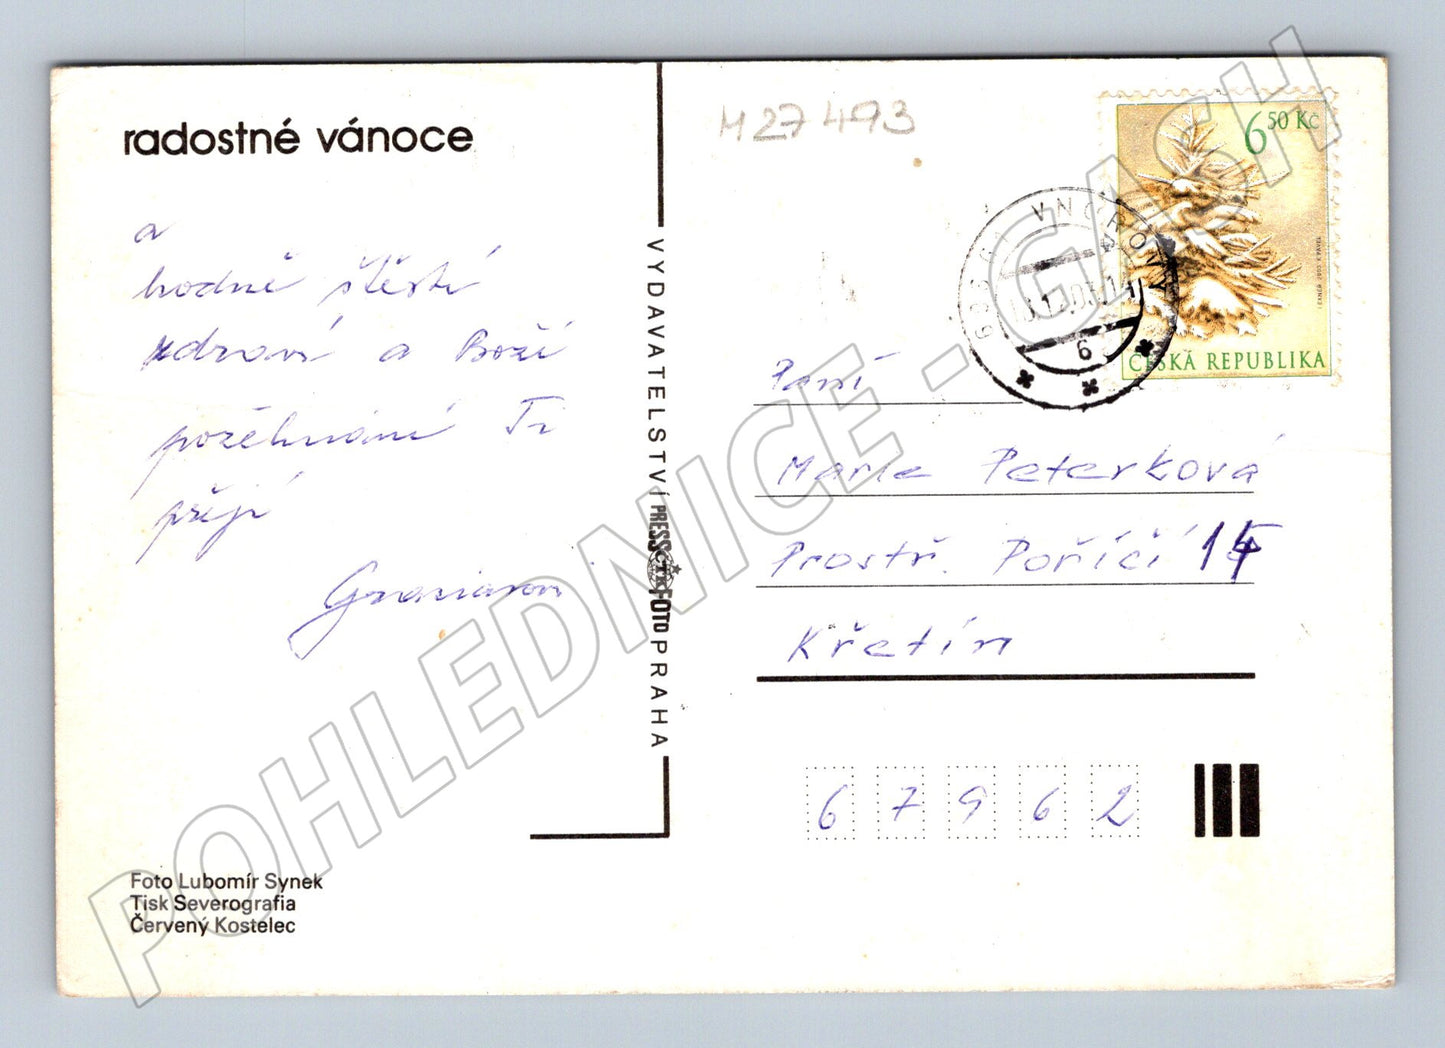 radostné vánoce
a
hodně štěstí
zdraví a Boží
požehnání Ti
přejí
VYDAVATELSTVÍ PRESSFOTO PRAHA
ČTK
M27493
6 50 Kč
ČESKÁ REPUBLIKA
VNOROVY
6
Paní
Marie Peterková
Prostř. Poříčí 14
Křetín
67962
Foto Lubomír Synek
Tisk Severografia
Červený Kostelec
POHLEDNICE - GASH